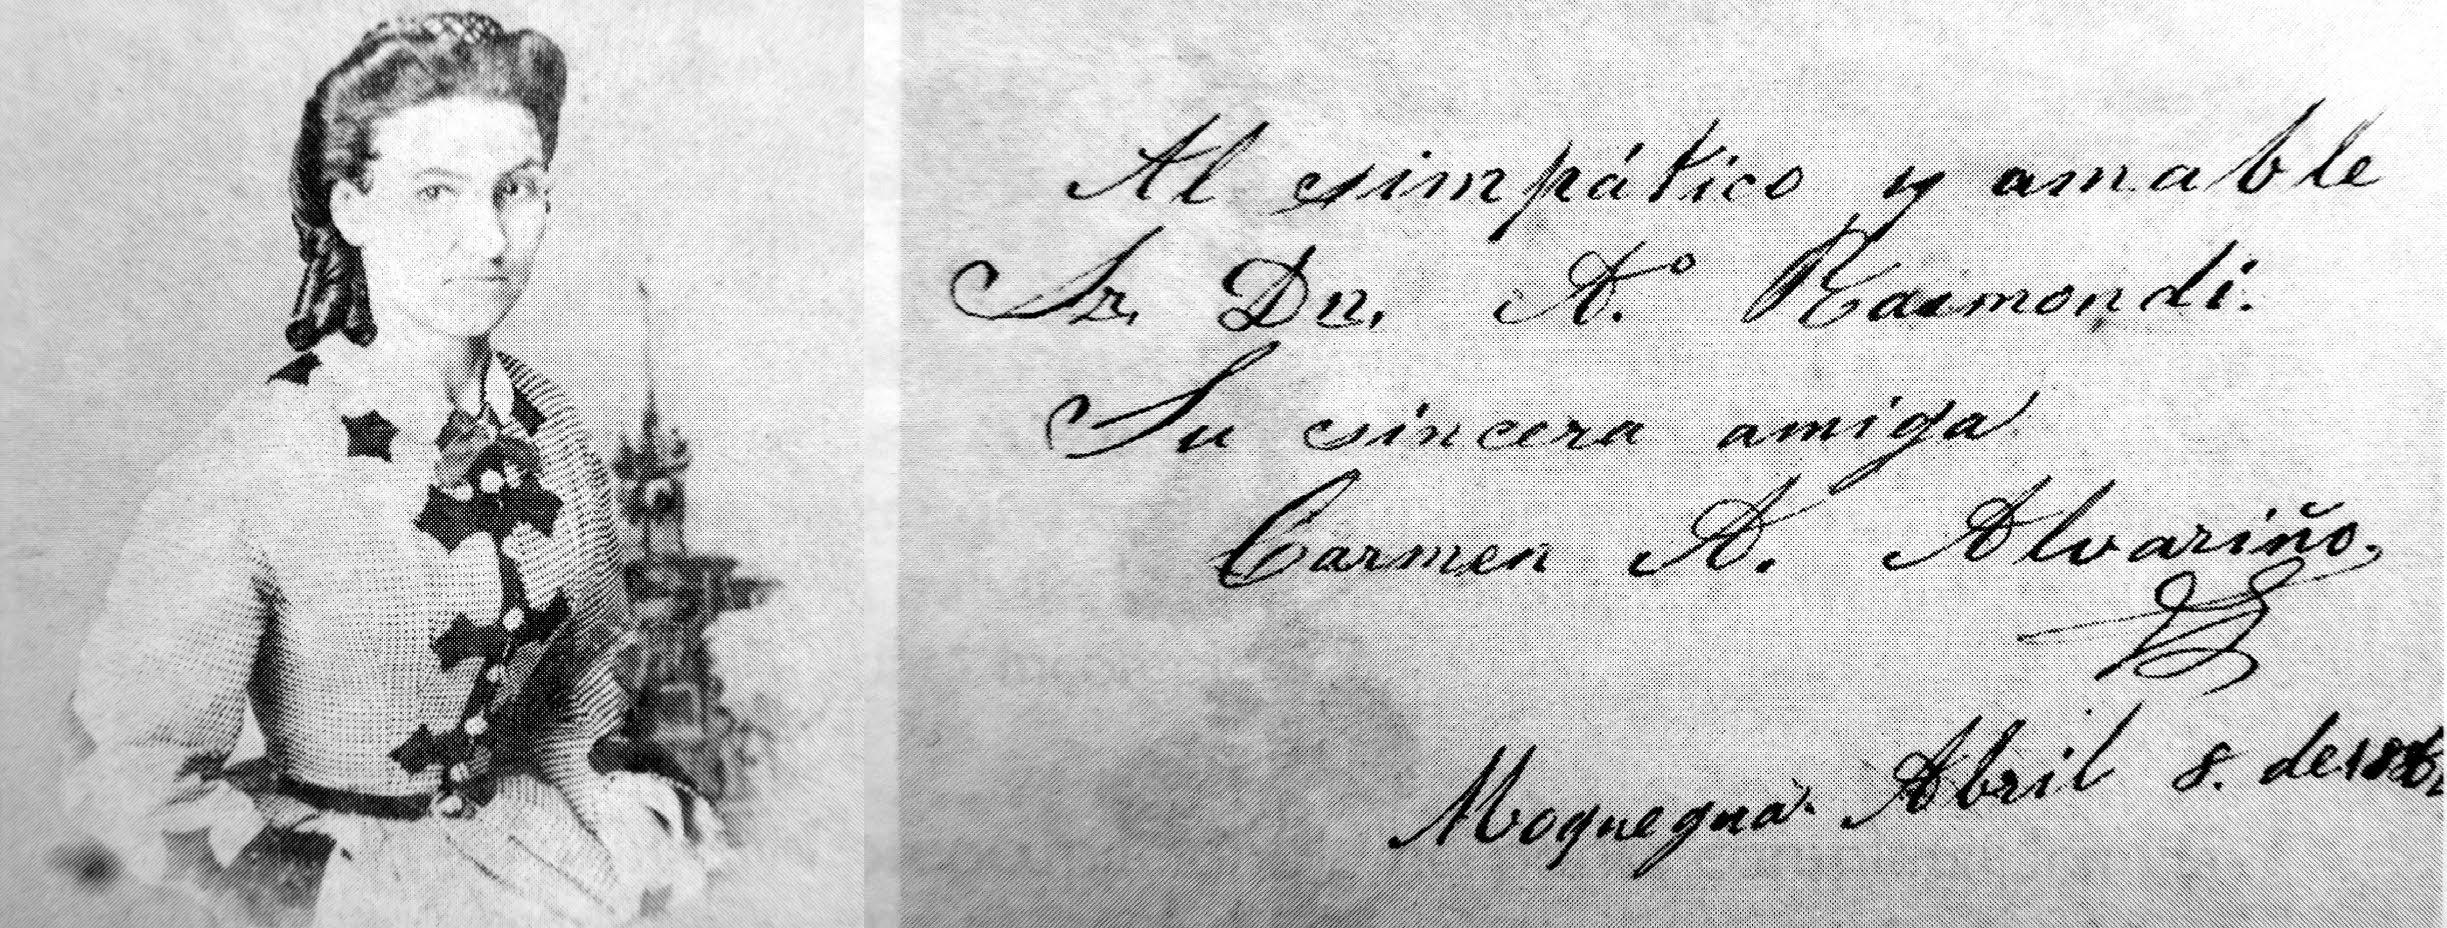 Al simpático y amable
Sr. Dn. A.º Raimondi.
Su sincera amiga
Carmen A. Alvariño.
Moquegua. Abril 8. de